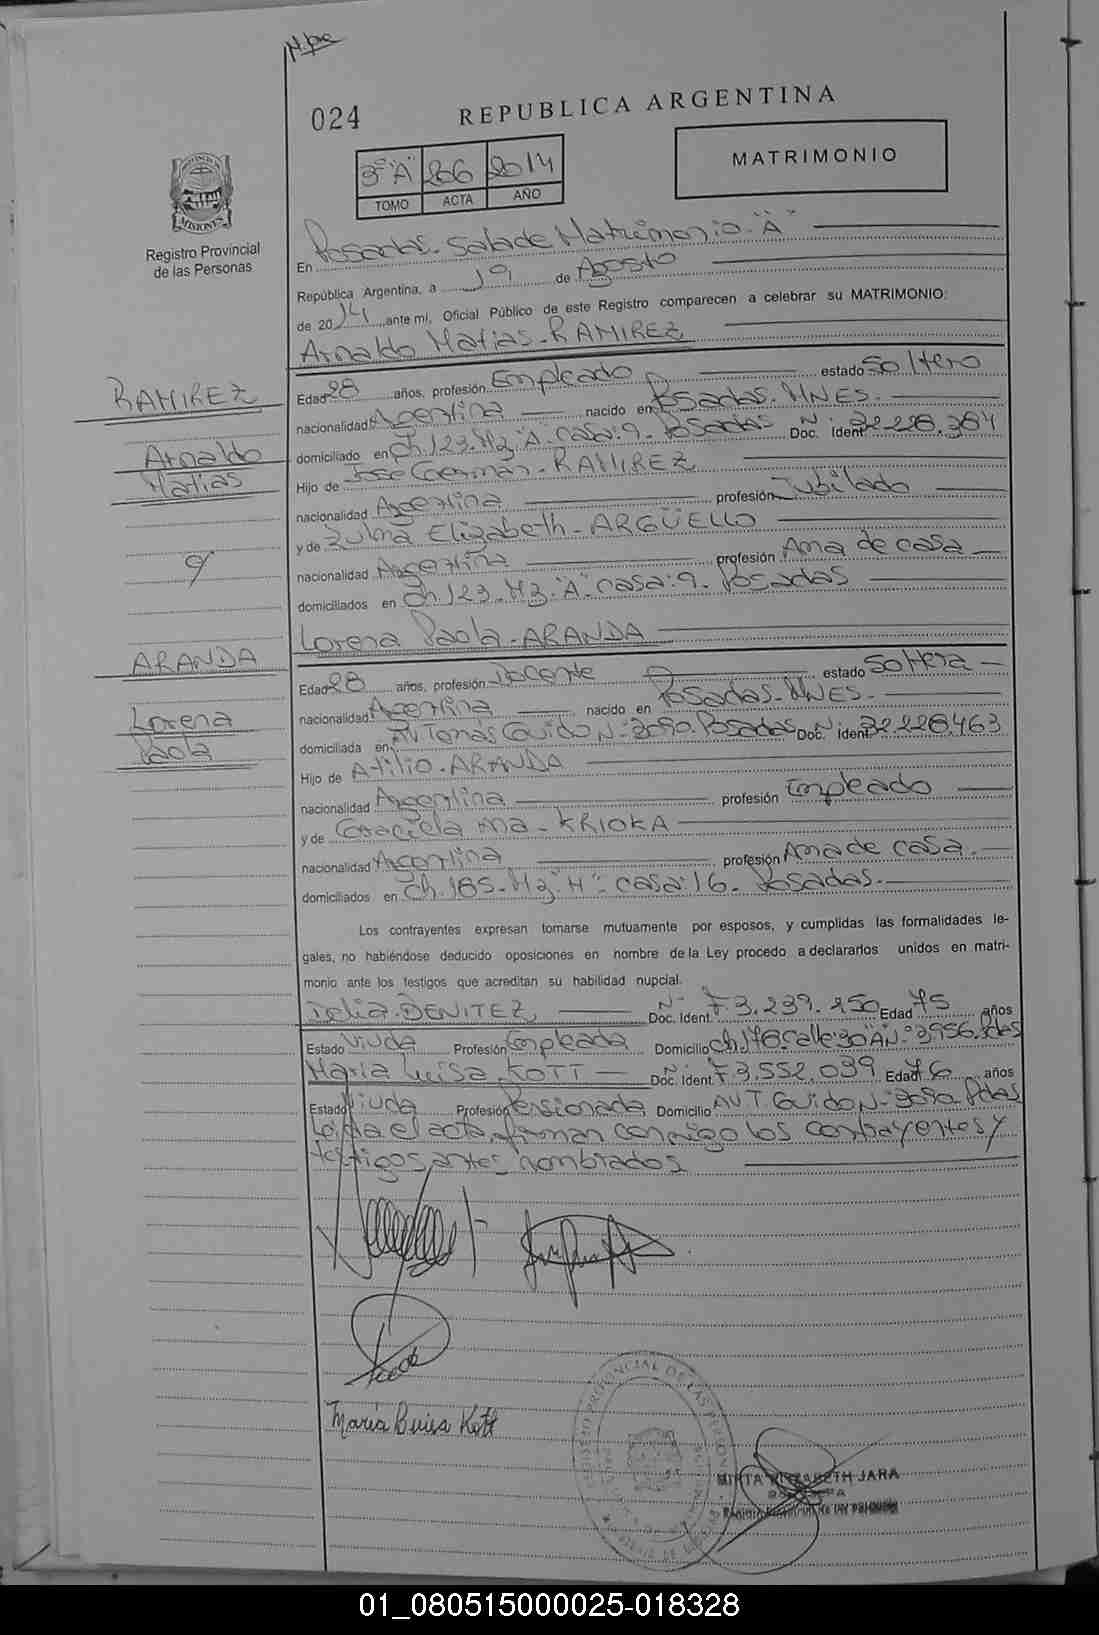 024
REPUBLICA ARGENTINA
MATRIMONIO
3º "A" 206 2014
TOMO ACTA AÑO
MISIONES
Registro Provincial
de las Personas
En Posadas. Sala de Matrimonio. "A"
República Argentina, a de Agosto
de 2014 ,ante mí, Oficial Público de este Registro comparecen a celebrar su MATRIMONIO:
Arnaldo Matias. RAMIREZ
RAMIREZ
Arnaldo
Matias
Edad 28 años, profesión Empleado estado Soltero
nacionalidad Argentina nacido en Posadas. MNES.
domiciliado en Ch. 123. Mz. "A". casa: 9. Posadas Doc. Ident. Nº
Hijo de José Germán. RAMIREZ
nacionalidad Argentina profesión Jubilado
y de Zulma Elizabeth. ARGÜELLO
nacionalidad Argentina profesión Ama de casa
domiciliados en Ch. 123. Mz. "A" casa: 9. Posadas
y
Lorena Paola. ARANDA
ARANDA
Lorena
Paola
Edad 28 años, profesión Docente estado Soltera
nacionalidad Argentina nacido en Posadas. MNES.
domiciliada en AV. Tomás Guido Nº Posadas Doc. Ident. Nº
Hijo de Atilio. ARANDA
nacionalidad Argentina profesión Empleado
y de Graciela Ma. KRIOKA
nacionalidad Argentina profesión Ama de casa.
domiciliados en Ch. 185. Mz. "H". casa: 16. Posadas.
Los contrayentes expresan tomarse mutuamente por esposos, y cumplidas las formalidades le-
gales, no habiéndose deducido oposiciones en nombre de la Ley procedo a declararlos unidos en matri-
monio ante los testigos que acreditan su habilidad nupcial.
Delia. BENITEZ Doc. Ident. Nº F3.239.250 Edad 75 años
Estado Viuda Profesión Empleada Domicilio Ch. Calle: Nº 3956. Pdas
Maria Luisa. KOTT Doc. Ident. Nº F3.552.039 Edad 76 años
Estado Viuda Profesión Pensionada Domicilio AV T. Guido Nº Pdas
Leída el acta, firman conmigo los contrayentes y
testigos antes nombrados
María Luisa Kott
MIRTA ELIZABETH JARA
01_080515000025-018328